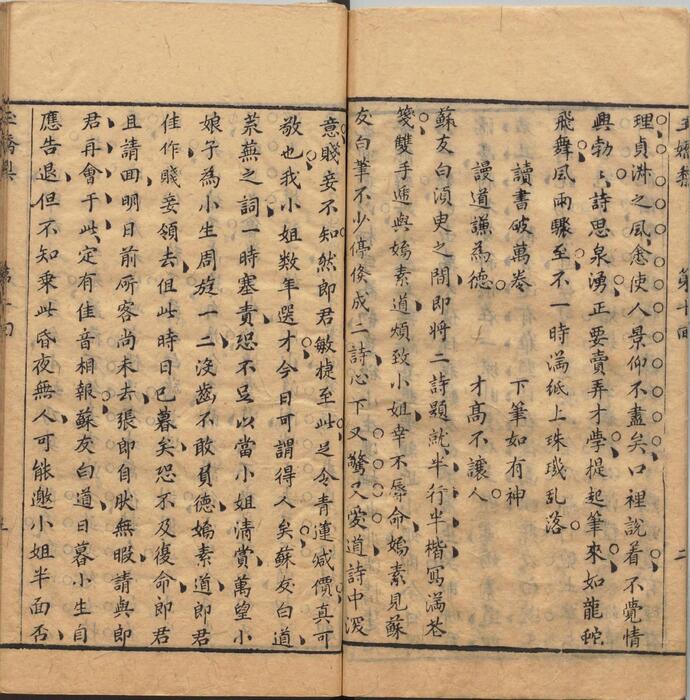 理貞淋之風愈使人景仰不盡矣口裡說着不覺情
興勃〻詩思泉湧正要賣弄才學提起筆來如龍蛇
飛舞風雨驟至不一時滿紙上珠璣乱落
讀書破萬卷　下筆如有神
謾道謙為德　才髙不讓人
蘇友白湏臾之間即將二詩題就半行半楷寫滿花
箋雙手遞與嫣素道煩致小姐幸不辱命嫣素見蘇
友白筆不少停倏成二詩心下又驚又愛道詩中深
意賤妾不知然郎君敏捷至此足令青蓮减價真可
敬也我小姐数年選才今日可謂得人矣蘇友白道
菉蕪之詞一時塞責恐不足以當小姐清賞萬望小
娘子為小生周旋一二沒齒不敢負德嫣素道郎君
佳作賤妾領去但此時日已暮矣恐不及復命郎君
且請囬明日前㕔客尚未去張郎自然無暇請與郎
君再會于此定有佳音相報蘇友白道日暮小生自
應告退但不知乘此昏夜無人可能邀小姐半面否
第十囬
二